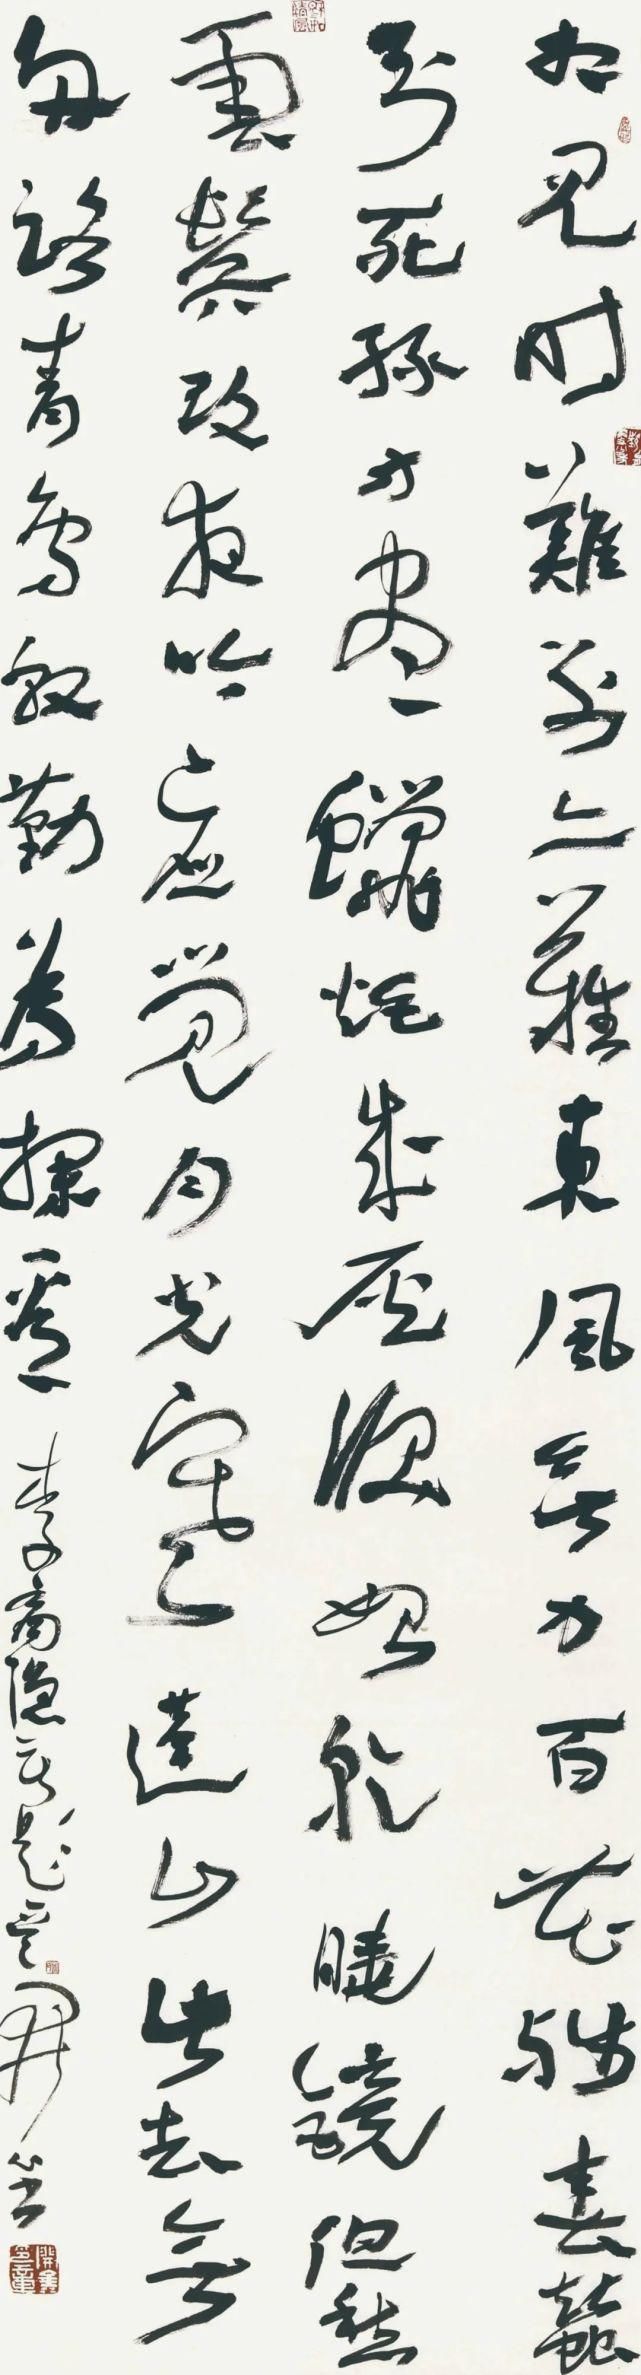 相见时难别亦难东风无力百花残春蚕
到死丝方尽蜡炬成灰泪始乾晓镜但愁
云鬓改夜吟应觉月光寒蓬山此去无
多路青鸟殷勤为探看李商隐无题